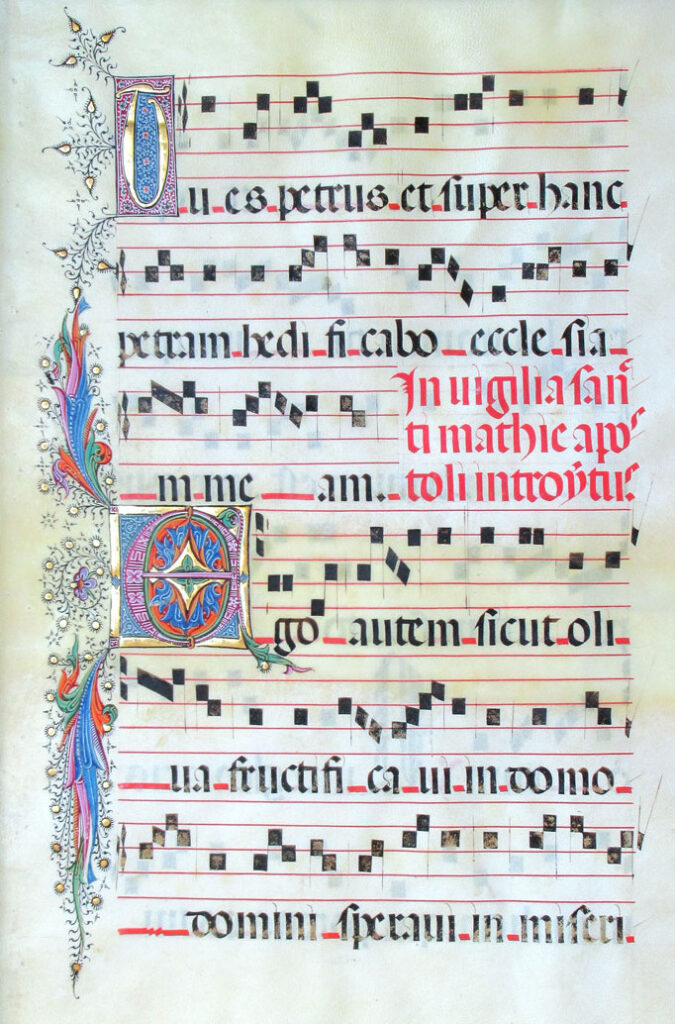 Tu es petrus et super hanc
petram hedi fi cabo eccle sia
In uigilia san
ti mathie apo
m me am. toli introytus
Ego autem sicut oli
ua fructifi ca ui in domo
domini speraui in miseri